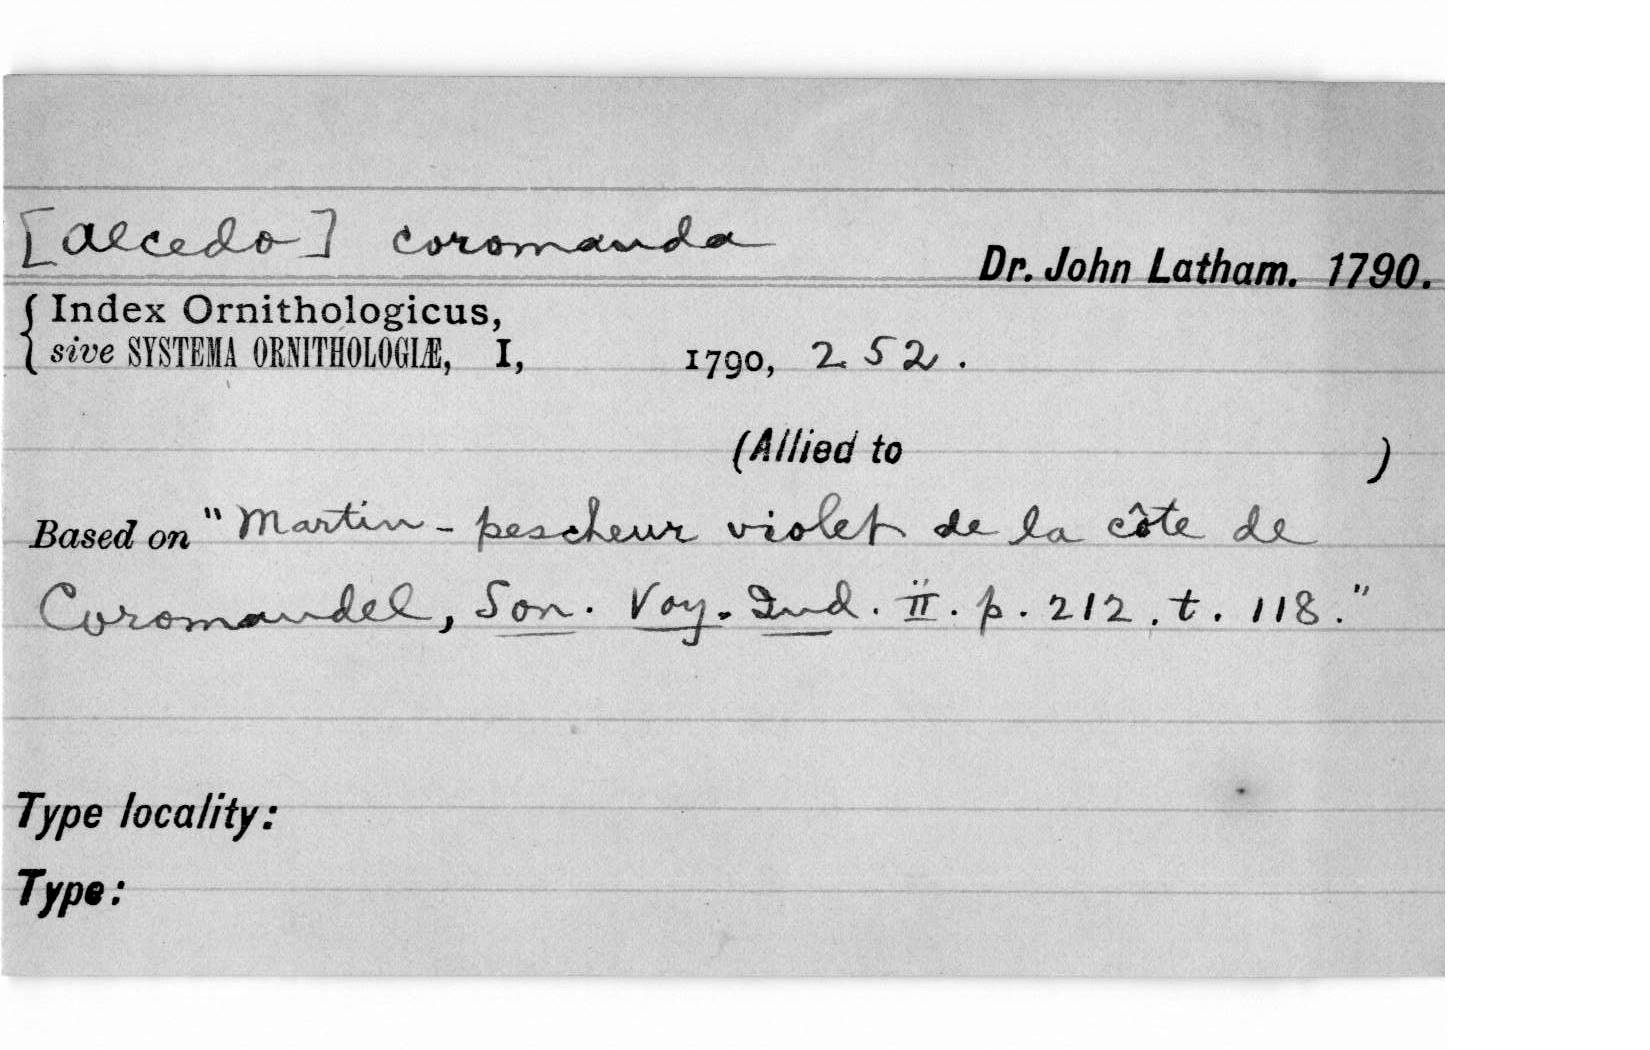 [Alcedo] coromanda
Dr. John Latham. 1790.
{ Index Ornithologicus,
sive SYSTEMA ORNITHOLOGIÆ, I, 1790, 252.
(Allied to )
Based on "Martin-pescheur violet de la côte de
Coromandel, Son. Voy. Ind. II. p. 212. t. 118."
Type locality:
Type: